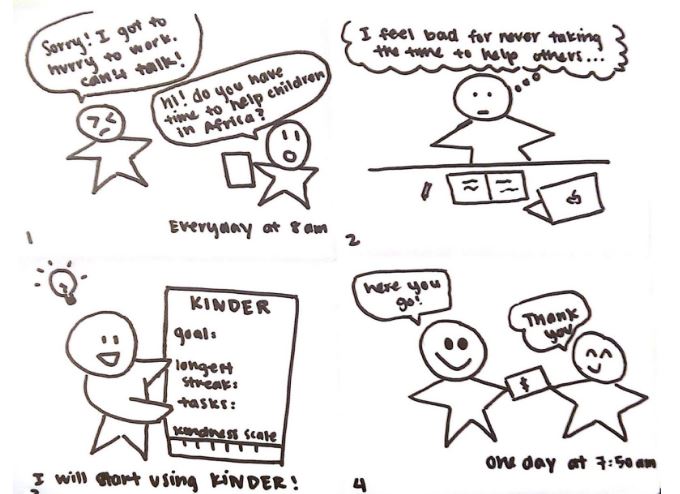 Sorry! I got to
hurry to work.
can't talk!
Hi! do you have
time to help children
in Africa?
Everyday at 8 am
1
I feel bad for never taking
the time to help others...
2
KINDER
goal:
longest
streak:
tasks:
kindness scale
I will start using KINDER!
3
here you
go!
Thank
you!
$
one day at 7:50 am
4